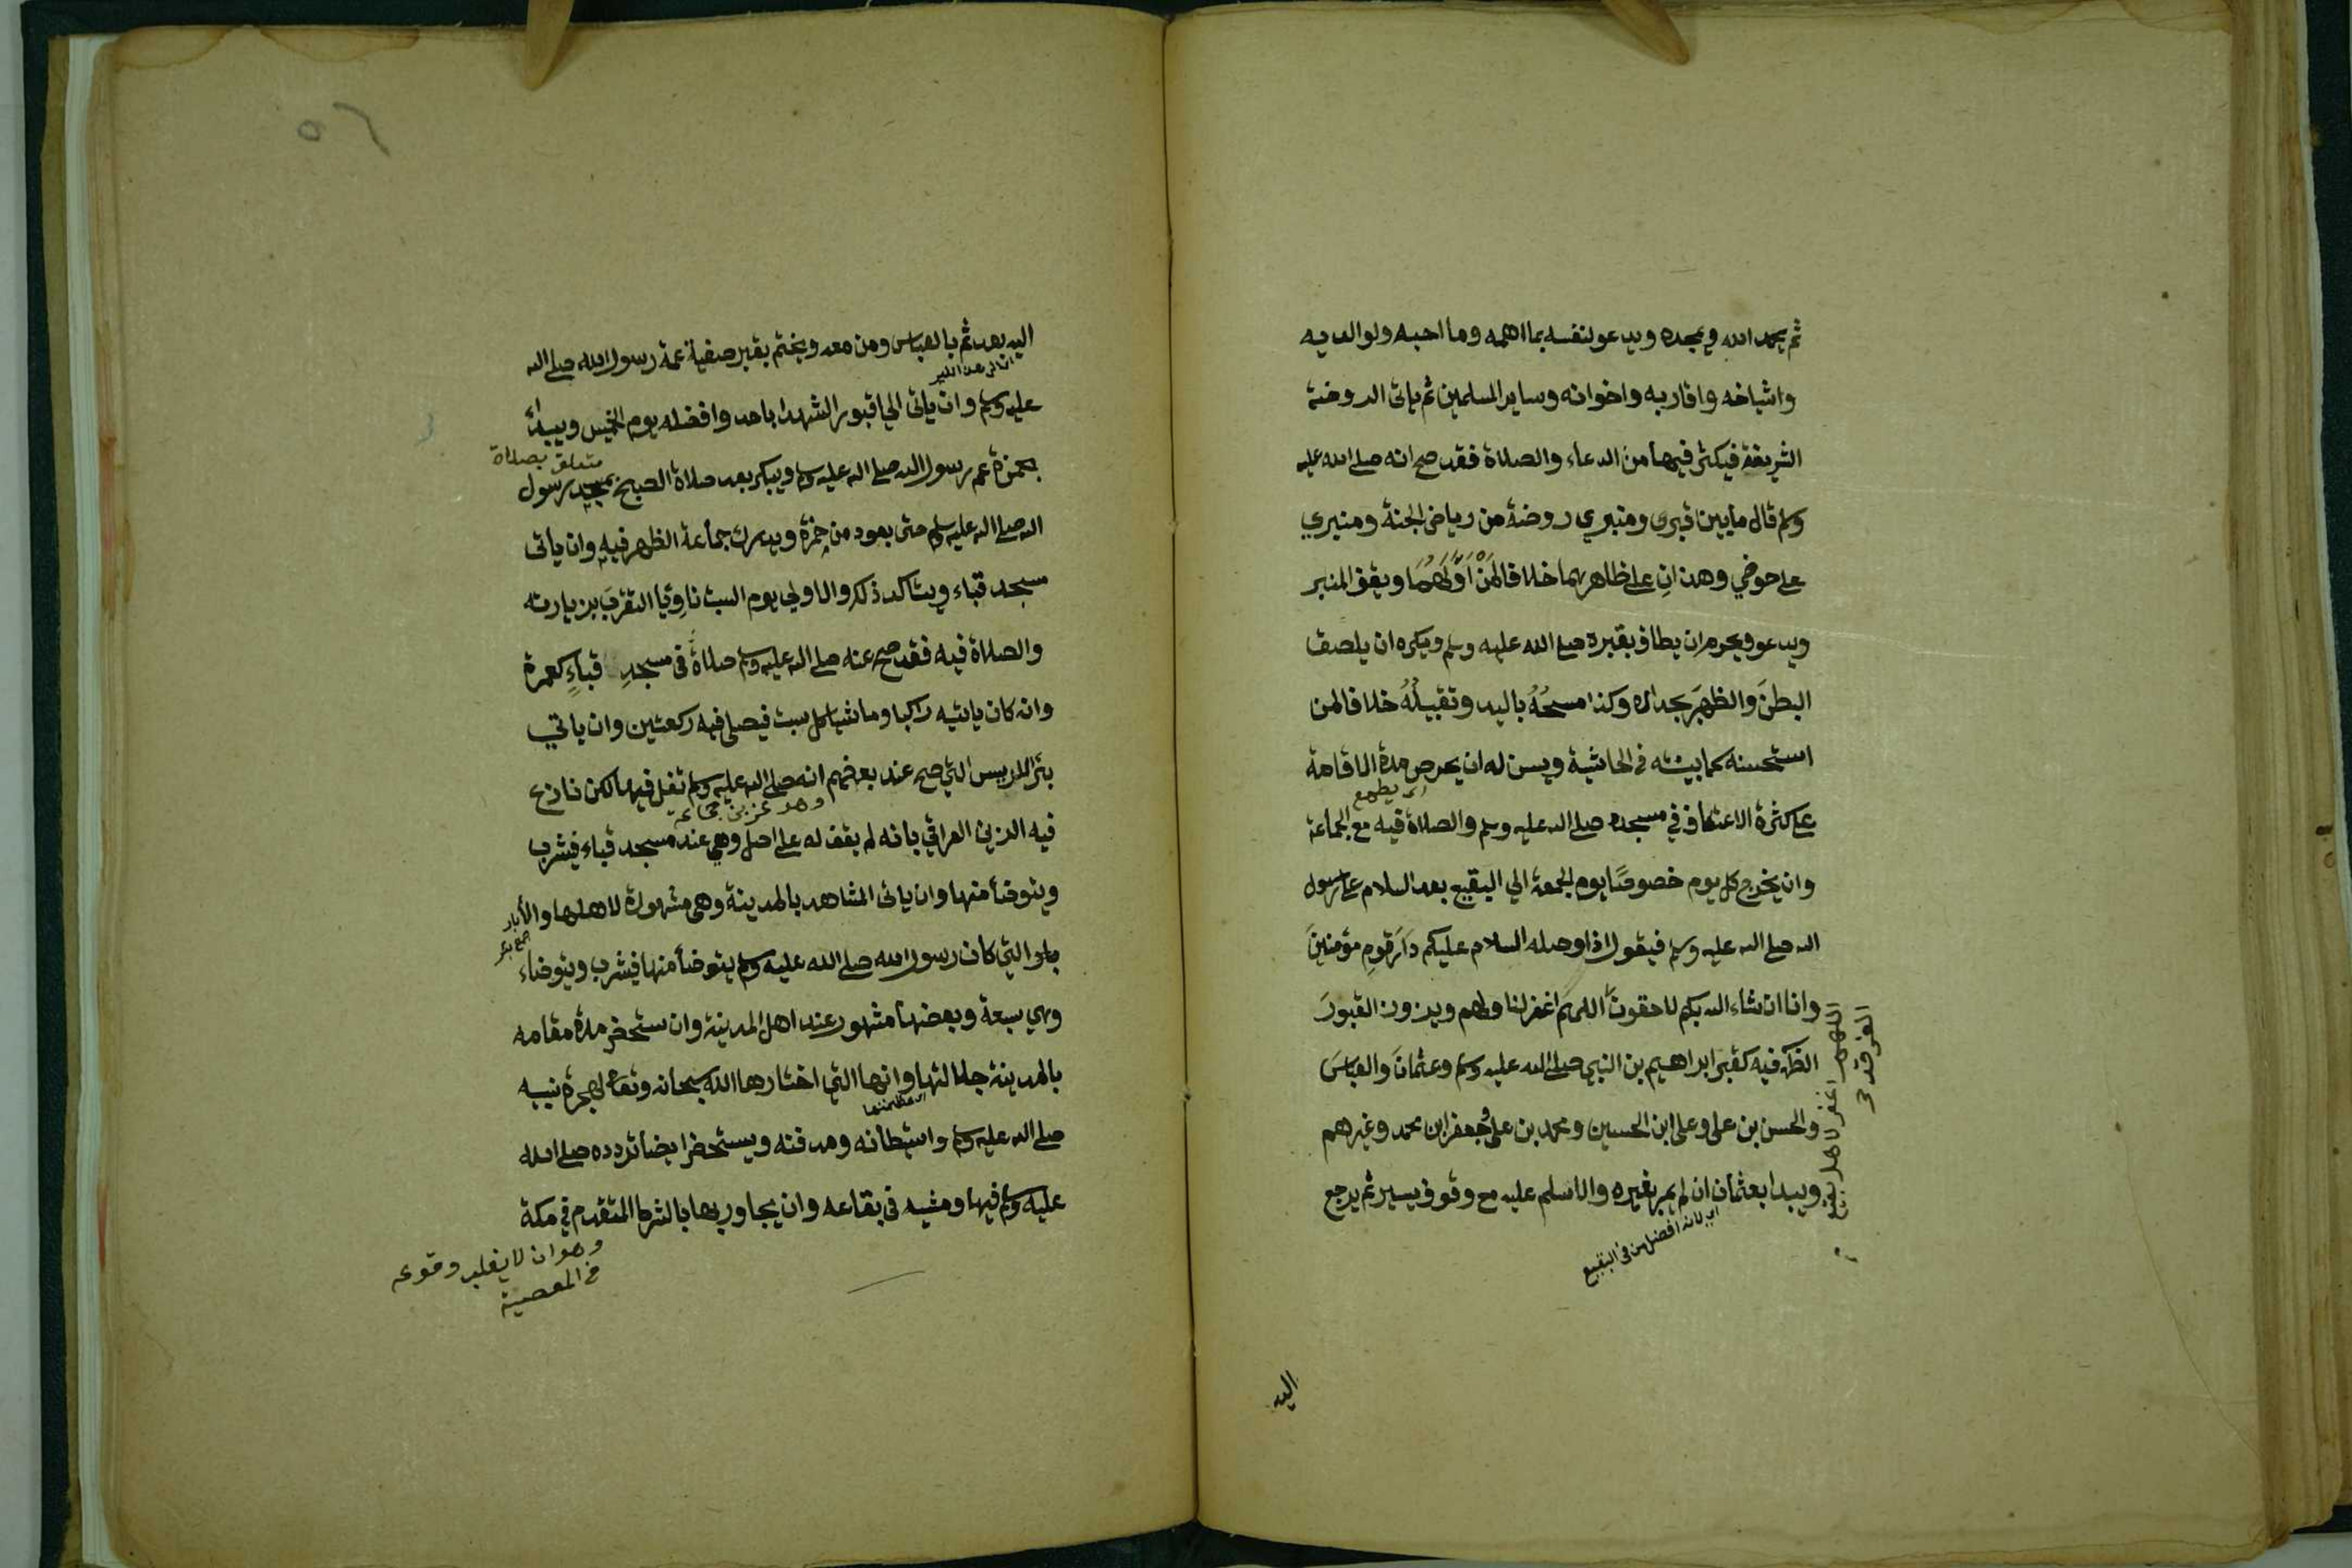 ثم يحمد الله ويمجده ويدعو لنفسه بما اهمه وما احبه ولوالديه
واشياخه واقاربه واخوانه وساير المسلمين ثم ياتى الروضة
الشريفة فيكثر فيها من الدعاء والصلاة فقد صح انه صلى الله عليه
وسلم قال ما بين قبرى ومنبري روضة من رياض الجنة ومنبري
على حوضي وهذانِ على ظاهرهما خلافا لمَنْ اَوَّلَهُمَا ويقف المنبر
ويدعو ويحرم ان يطاف بقبره صلى الله عليه وسلم ويكره ان يلصق
البطنَ والظهرَ بجداره وكذا مسحُهُ باليد وتقبيلُهُ خلافا لمن
استحسنه كما بينته في الحاشية ويسن له ان يحرص مدة الاقامة
اى يطمع
على كثرة الاعتكاف في مسجده صلى الله عليه وسلم والصلاة فيه مع الجماعة
وان يخرج كل يوم خصوصًا يوم الجمعة الي البقيع بعد السلام على رسول
الله صلى الله عليه وسلم فيقول اذا وصله السلام عليكم دَارَ قومٍ مؤمنينَ
وانا ان شاء الله بكم لاحقونَ اللهم اغفر لنا ولهم ويزورن القبورَ
فيه كقبر ابراهيم بن النبي صلى الله عليه وسلم وعثمانَ والعباسَ
والحسن بن على وعلى ابن الحسين ومحمد بن على وجعفر ابن محمد وغيرهم
ويبدا بعثمان ان لم يمر بغيره والا سلم عليه مع وقوف يسير ثم يرجع
اي لانه افضل من فى البقيع
اللهم اغفر لاهل بقيع
الغرقد
اليه
٥٢
اليه بعد ثم بالعباس ومن معه ويختم بقبر صفية عمة رسول الله صلى الله
عليه وسلم وان ياتى الي قبور الشهدا باحد وافضله يوم الخميس ويبدأ
متعلق بصلاة
بحمزة عم رسول الله صلى الله عليه وسلم ويبكر بعد صلاة الصبح بمسجد رسول
الله صلى الله عليه وسلم حتى يعود من حمزة ويدرك جماعة الظهر فيه وان ياتى
مسجد قباء ويتاكد ذلك والاولي يوم السبت ناوِيًا التقرُّبَ بزيارته
والصلاة فيه فقد صح عنه صلى الله عليه وسلم صلاةٌ فى مسجدِ قباءٍ كعمرة
وانه كان ياتيه راكبا وماشيا كل سبت فيصلى فيه ركعتين وان ياتي
بئر اريس التي صح عند بعضهم انه صلى الله عليه وسلم تفل فيها لكن نازع
وهو عز بن جماعة
فيه الزين العراقي بانه لم يقف له على اصل وهي عند مسجد قباء فيشرب
ويتوضأ منها وان ياتى المشاهد بالمدينة وهى مشهورة لاهلها والأبار
جمع بئر
التي كان رسول الله صلى الله عليه وسلم يتوضأ منها فيشرب ويتوضاء
وهي سبعة وبعضها مشهور عند اهل المدينة وان يستحضر مدة مقامه
بالمدينة جلالتها وانها التي اختارها الله سبحانه وتعالى لهجرة نبيه
اى عظمتها
صلى الله عليه وسلم واستيطانه ومدفنه ويستحضر ايضا تردده صلى الله
عليه وسلم فيها ومشيه فى بقاعه وان يجاور بها بالشرط المتقدم في مكة
وهو ان لا يغلب وقوعه
فى المعصية